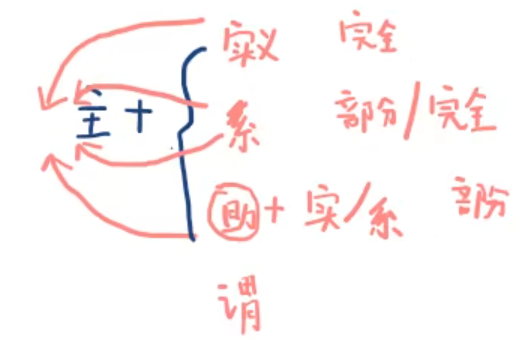 实义 完全
主 + { 系 部分/完全
助 + 实/系 部份
谓